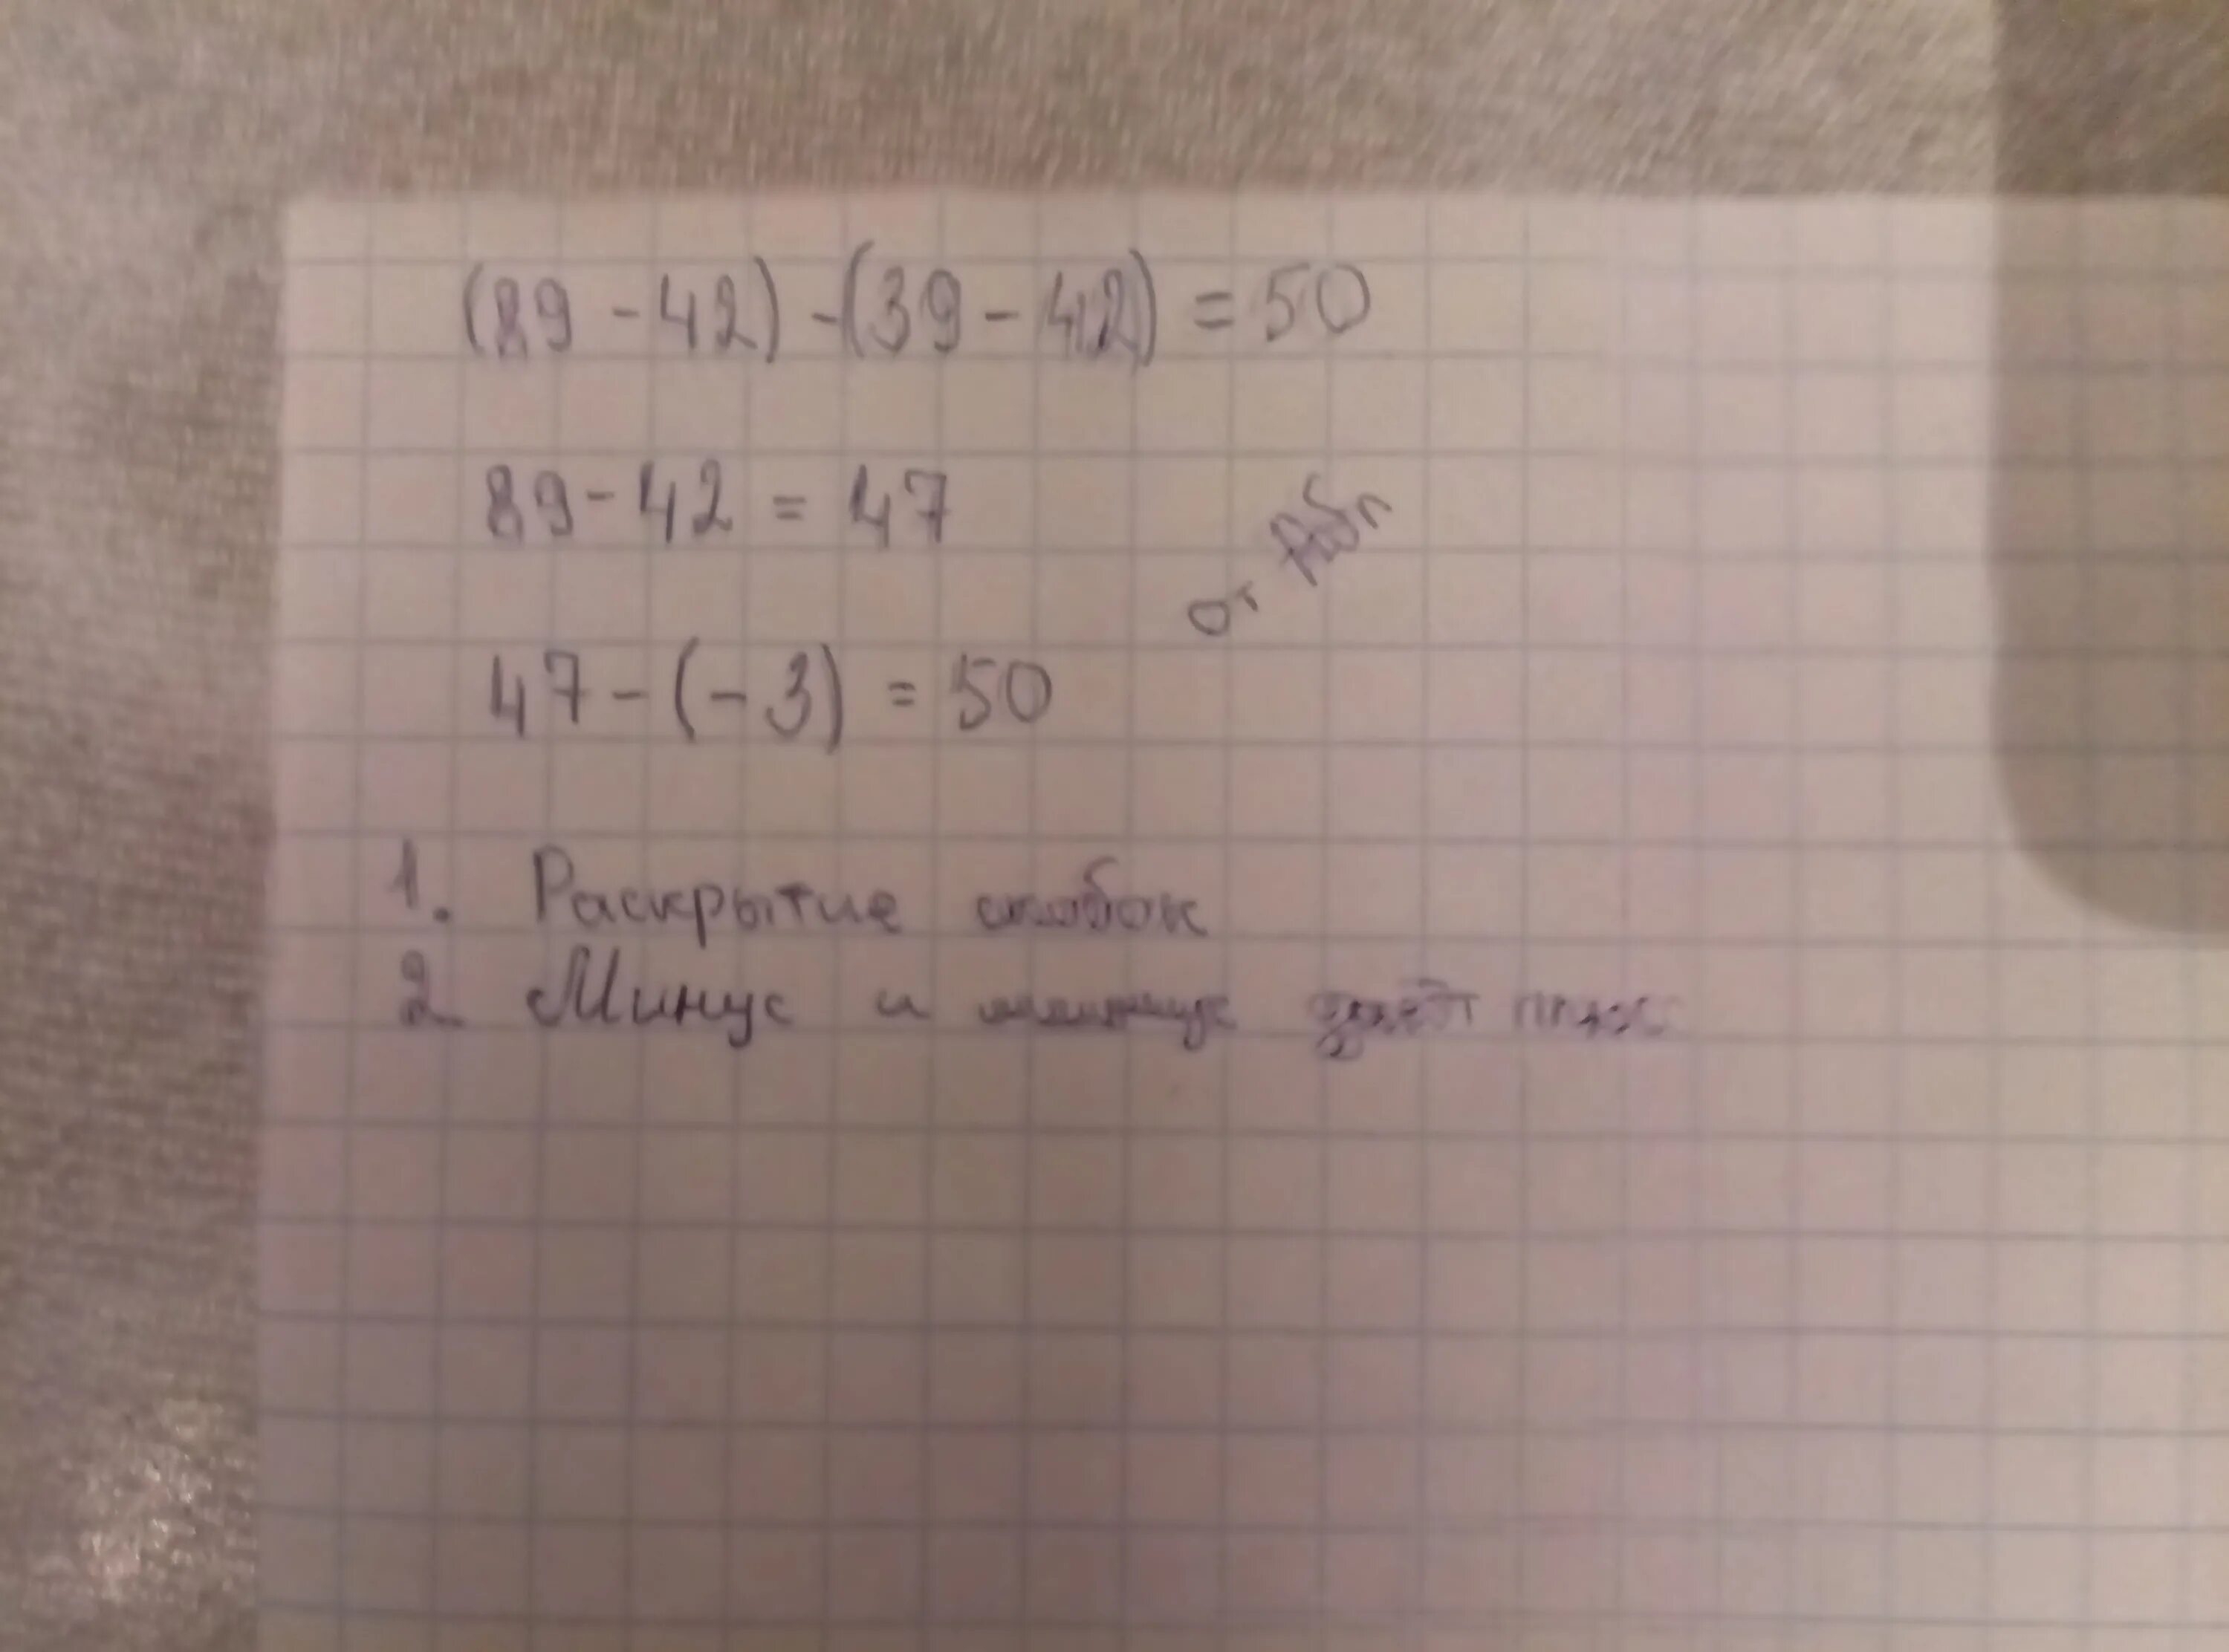 (89 - 42) - (39 - 42) = 50
89 - 42 = 47
от
47 - (-3) = 50
1. Раскрытие скобок
2 Минус и минус даёт плюс